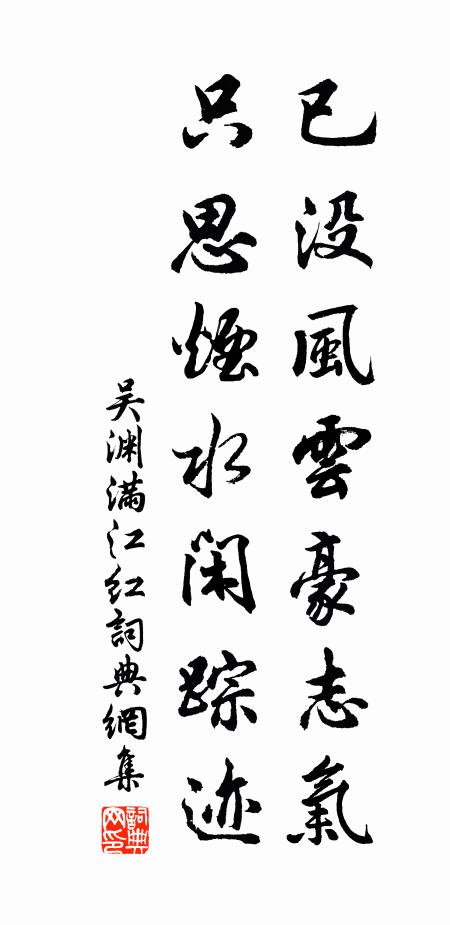 已没風雲豪志氣
只思煙水闲踪迹
吴渊满江红詞典網集
詞典
网印